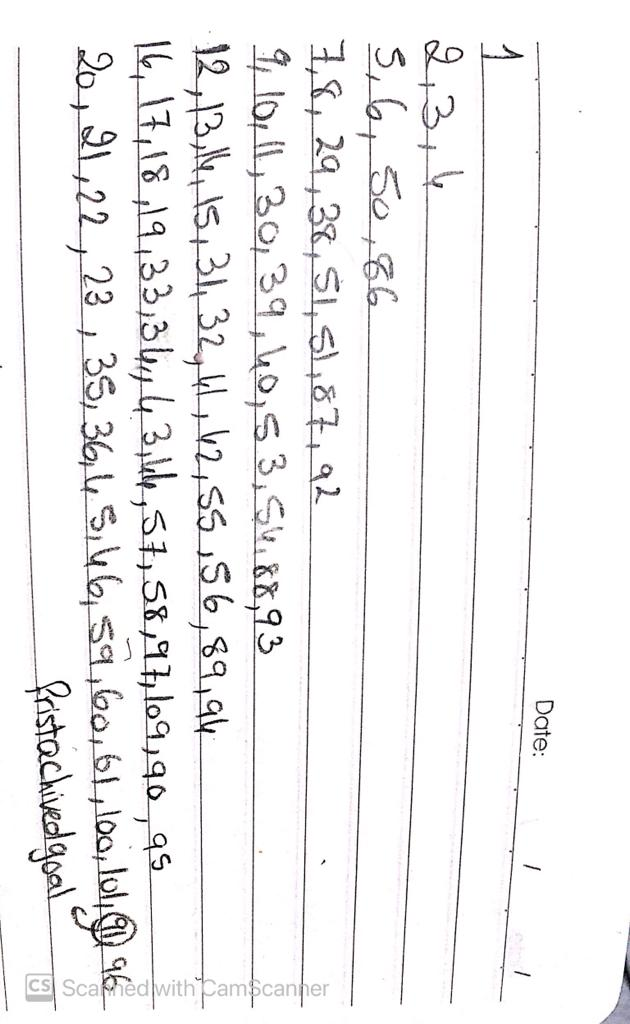 Date: / /
1
2,3,4
5,6,50,86
7,8,29,38,51,51,87,92
9,10,11,30,39,40,53,54,88,93
12,13,14,15,31,32,41,42,55,56,89,94
16,17,18,19,33,34,,43,44,57,58,97,109,90,95
20,21,22,23,35,36,45,46,59,60,61,100,101,91,96
Pristachivedgoal
CS Scanned with CamScanner